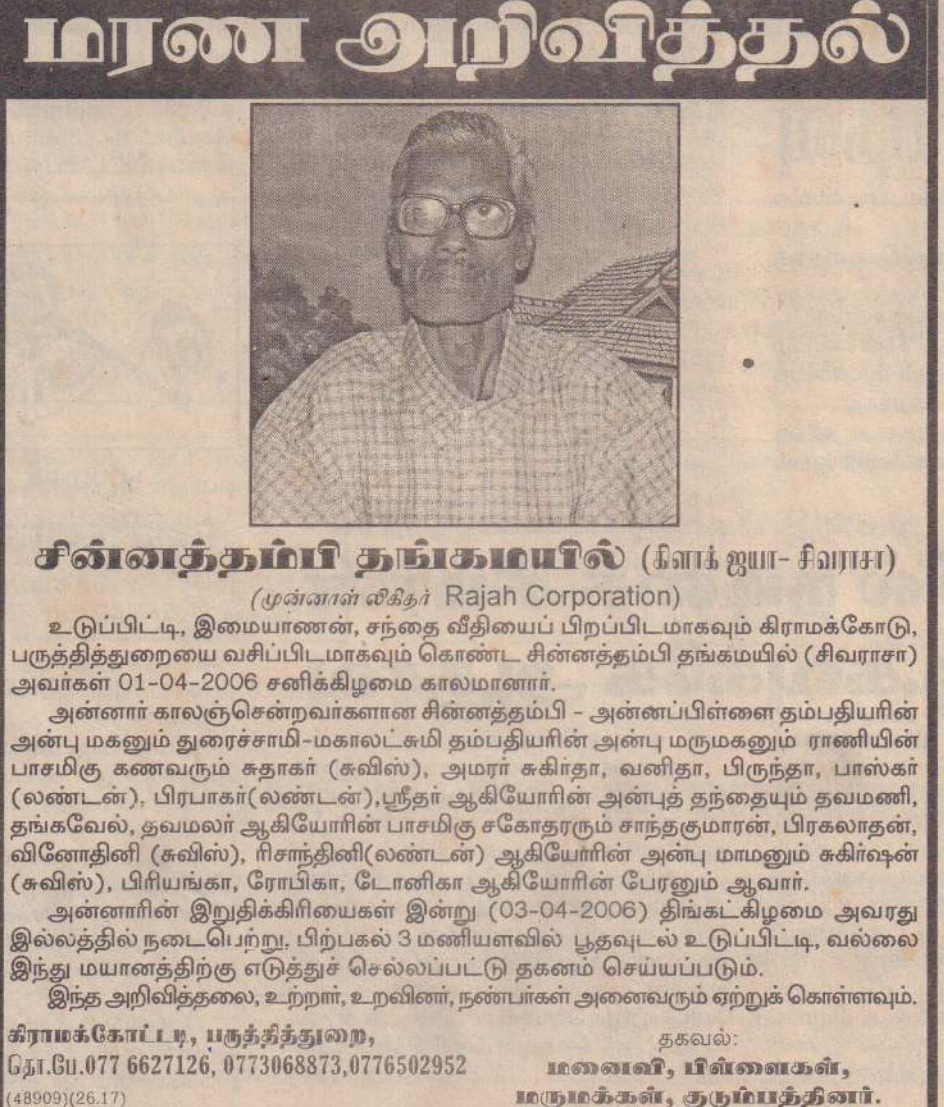 மரண அறிவித்தல்
சின்னத்தம்பி தங்கமயில் (கிளாக் ஐயா- சிவராசா)
(முன்னாள் லிகிதர் Rajah Corporation)
உடுப்பிட்டி, இமையாணன், சந்தை வீதியைப் பிறப்பிடமாகவும் கிராமக்கோடு,
பருத்தித்துறையை வசிப்பிடமாகவும் கொண்ட சின்னத்தம்பி தங்கமயில் (சிவராசா)
அவர்கள் 01-04-2006 சனிக்கிழமை காலமானார்.
அன்னார் காலஞ்சென்றவர்களான சின்னத்தம்பி - அன்னப்பிள்ளை தம்பதியரின்
அன்பு மகனும் துரைச்சாமி-மகாலட்சுமி தம்பதியரின் அன்பு மருமகனும் ராணியின்
பாசமிகு கணவரும் சுதாகர் (சுவிஸ்), அமரர் சுகிர்தா, வனிதா, பிருந்தா, பாஸ்கர்
(லண்டன்), பிரபாகர்(லண்டன்),ஸ்ரீதர் ஆகியோரின் அன்புத் தந்தையும் தவமணி,
தங்கவேல், தவமலர் ஆகியோரின் பாசமிகு சகோதரரும் சாந்தகுமாரன், பிரகலாதன்,
வினோதினி (சுவிஸ்), ரிசாந்தினி(லண்டன்) ஆகியோரின் அன்பு மாமனும் சுகிர்ஷன்
(சுவிஸ்), பிரியங்கா, ரோபிகா, டோனிகா ஆகியோரின் பேரனும் ஆவார்.
அன்னாரின் இறுதிக்கிரியைகள் இன்று (03-04-2006) திங்கட்கிழமை அவரது
இல்லத்தில் நடைபெற்று, பிற்பகல் 3 மணியளவில் பூதவுடல் உடுப்பிட்டி, வல்லை
இந்து மயானத்திற்கு எடுத்துச் செல்லப்பட்டு தகனம் செய்யப்படும்.
இந்த அறிவித்தலை, உற்றார், உறவினர், நண்பர்கள் அனைவரும் ஏற்றுக் கொள்ளவும்.
கிராமக்கோட்டடி, பருத்தித்துறை,
தொ.பே.077 6627126, 0773068873,0776502952
(48909)(26.17)
தகவல்:
மனைவி, பிள்ளைகள்,
மருமக்கள், குடும்பத்தினர்.